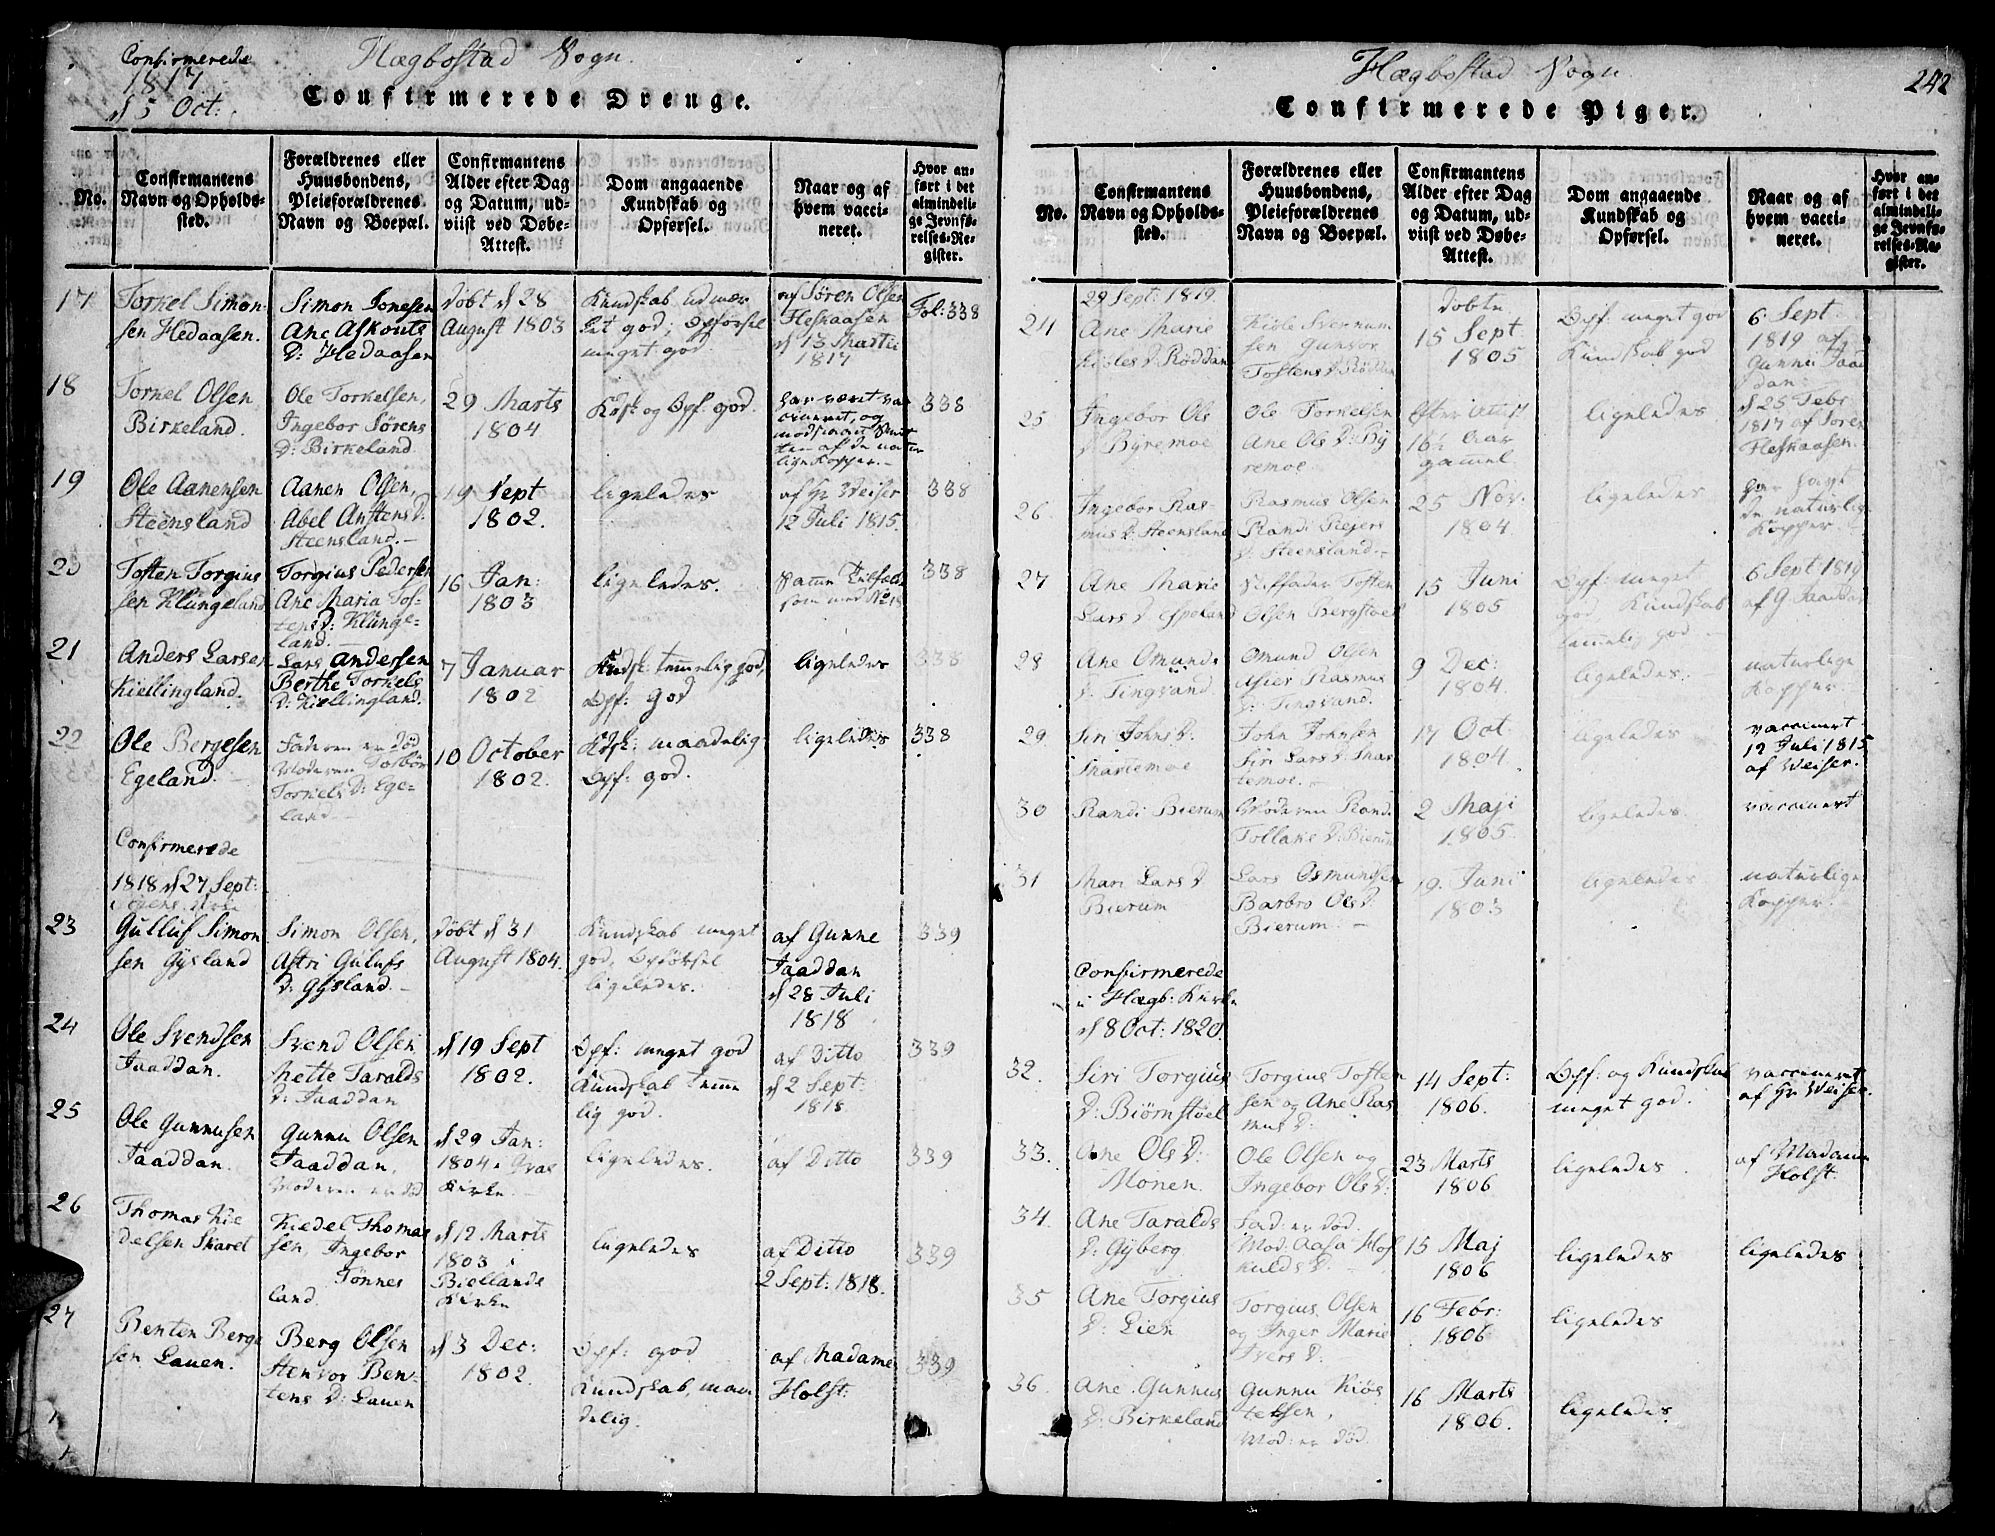 Confirmerede
1817
d 5 Oct:
Hægbostad Sogn.
Confirmerede Drenge.
No.
Confirmantens
Navn og Opholds-
sted.
Forældrenes eller
Huusbondens,
Pleieforældrenes
Navn og Boepæl.
Confirmantens
Alder efter Dag
og Datum, ud-
viist ved Døbe-
Attest.
Dom angaaende
Kundskab og
Opførsel.
Naar og af
hvem vacci-
neret.
Hvor an-
ført i det
almindeli-
ge Jevnfø-
relses-Re-
gister.
17
Torkel Simon-
sen Hedaasen.
Simon Jonesen
Ane Askouts
D: Hedaasen
døbt d 28
August 1803
Kundskab udmær
ket god; Opførsel
meget god.
af Søren Olsen
Heskaasen
d 13 Martii
1817
Fol: 338
18
Torkel Olsen
Birkeland.
Ole Torkelsen,
Ingebor Sørens
D: Birkeland
29 Marts
1804
Kdsk og Opf: god.
har været vac
cineret, og
modstaaet
af de
lige Kopper.
338
19
Ole Aanensen
Steensland
Aanen Olsen,
Abel Anstens D:
Steensland.
19 Sept
1802.
ligeledes
af Gr Weiser
12 Juli 1815.
338
20
Tosten Torgius
sen Klungeland
Torgius Pedersen
Ane Maria Tos-
tens D: Klunge-
land.
16 Jan:
1803
ligeledes.
Samme Tilfælde
som med No 18
338
21
Anders Larsen
Kiellingland.
Lars Andersen
Berthe Torkels
D: Kiellingland.
7 Januar
1802
Kndsk: temmelig god,
Opf: god
ligeledes
338
22
Ole Bergesen
Egeland.
Faderen er død
Moderen Torbor
Torkels D: Ege-
land
10 October
1802.
Kdsk: maadelig
Opf: god.
ligeledes
338
Confirmerede
1818 d 27 Sept:
23
Gulluf Simon
sen Gysland
Simon Olsen,
Astri Gulufs
D: Gysland.
døbt d 31
August 1804.
Kundskab meget
god, Opførsel
ligeledes.
af Gunne
Jaaddan
d 28 Juli
1818
339
24
Ole Svendsen
Jaaddan.
Svend Olsen
Mette Taralds
D: Jaaddan
d 19 Sept
1802.
Opf: meget god
Kundskab temme
lig god.
af Ditto
d 2 Sept:
1818
339
25
Ole Gunnusen
Jaaddan.
Gunnu Olsen
Jaaddan,
Moderen er død
d 29 Jan:
1804 i Qvas
Kirke
ligeledes.
af Ditto
339
26
Thomas Kie
delsen Skaret
Kiedel Thomas
sen, Ingebor
Tønnes
land.
d 12 Marts
1803 i
Biellands
Kirke
ligeledes
af Ditto
2 Sept: 1818.
339
27
Benten Berge
sen Lauen.
Berg Olsen
Stenvor Ben-
tens D: Lauen
d 3 Dec:
1802.
Opf: god
Kundskab, maa
delig.
af Madame
Holst.
339
Hægbostad Sogn
242
Confirmerede Piger.
No.
Confirmantens
Navn og Opholds-
sted.
Forældrenes eller
Huusbondens,
Pleieforældrenes
Navn og Boepæl.
Confirmantens
Alder efter Dag
og Datum, ud-
viist ved Døbe-
Attest.
Dom angaaende
Kundskab og
Opførsel.
Naar og af
hvem vacci-
neret.
Hvor an-
ført i det
almindeli-
ge Jevnfø-
relses-Re-
gister.
29 Sept: 1819.
24
Ane Marie
Kioles D: Røddan
Kiole Svennum
sen Gunvor
Tostens D: Røddan
døbte
15 Sept
1805
Opf: meget god
Kundskab god
6 Sept
1819 af
Gunnu Jaad
dan
25
Ingebor Ols
D: Byremoe
Ole Torkelsen
Ane Ols D: By
remoe
efter Attest
16½ Aar
gammel
ligeledes
d 25 Febr
1817 af Søren
Heskaasen.
26.
Ingebor Ras-
mus D: Steensland
Rasmus Olsen
Randi Rejers
D: Steensland.
25 Nov.
1804
ligeledes
har havt
de naturlige
Kopper.
27
Ane Marie
Lars D: Espeland
Stiffader Tosten
Olsen Bergstoel
15 Juni
1805
Opf: meget
god Kundskab
temmelig god
6 Sept 1819
af G. Jaaddan
28
Ane Omunds
D: Tingvand.
Omund Olsen
Asier Rasmus
D: Tingvand.
9 Dec:
1804.
ligeledes.
naturlige
Kopper.
29
Siri Johns D:
Snartemoe
John Johnsen
Siri Lars D: Snar
temoe.
17 Oct
1804.
ligeledes
vaccineret
12 Juli 1815
af Weiser.
30
Randi Bierum
Moderen Randi
Tollakс D: Bierum
2 Maji
1805.
ligeledes.
vaccineret
31
Mari Lars D
Bierum
Lars Osmundsen
Barbro Ols D:
Bierum.
19. Juni
1803
ligeledes
naturlige
Kopper.
Confirmerede
i Hægb: Kirke
d 8 Oct: 1820.
32.
Siri Torgius
D: Biørnstøel
Torgius Tosten
sen og Ane Ras
mus D:
14 Sept:
1806.
Opf: og Kundskab
meget god.
vaccineret
af Gr Weiser.
33.
Ane Ols D:
Monen.
Ole Olsen og
Ingebor Ols D:
23 Marts
1806
ligeledes
af Madame
Holst:
34.
Ane Taralds
D: Gyberg
Fad: er død.
Mod: Aasa Hos
kulds D.
15 Maj
1806
ligeledes
ligeledes
35
Ane Torgius
D: Lien
Torgius Olsen
og Inger Marie
Ivers D:
16 Febr:
1806
ligeledes
36.
Ane Gunnus
D: Birkeland
Gunnu Kiøs
telsen,
Mod: er død.
16 Marts
1806.
ligeledes.